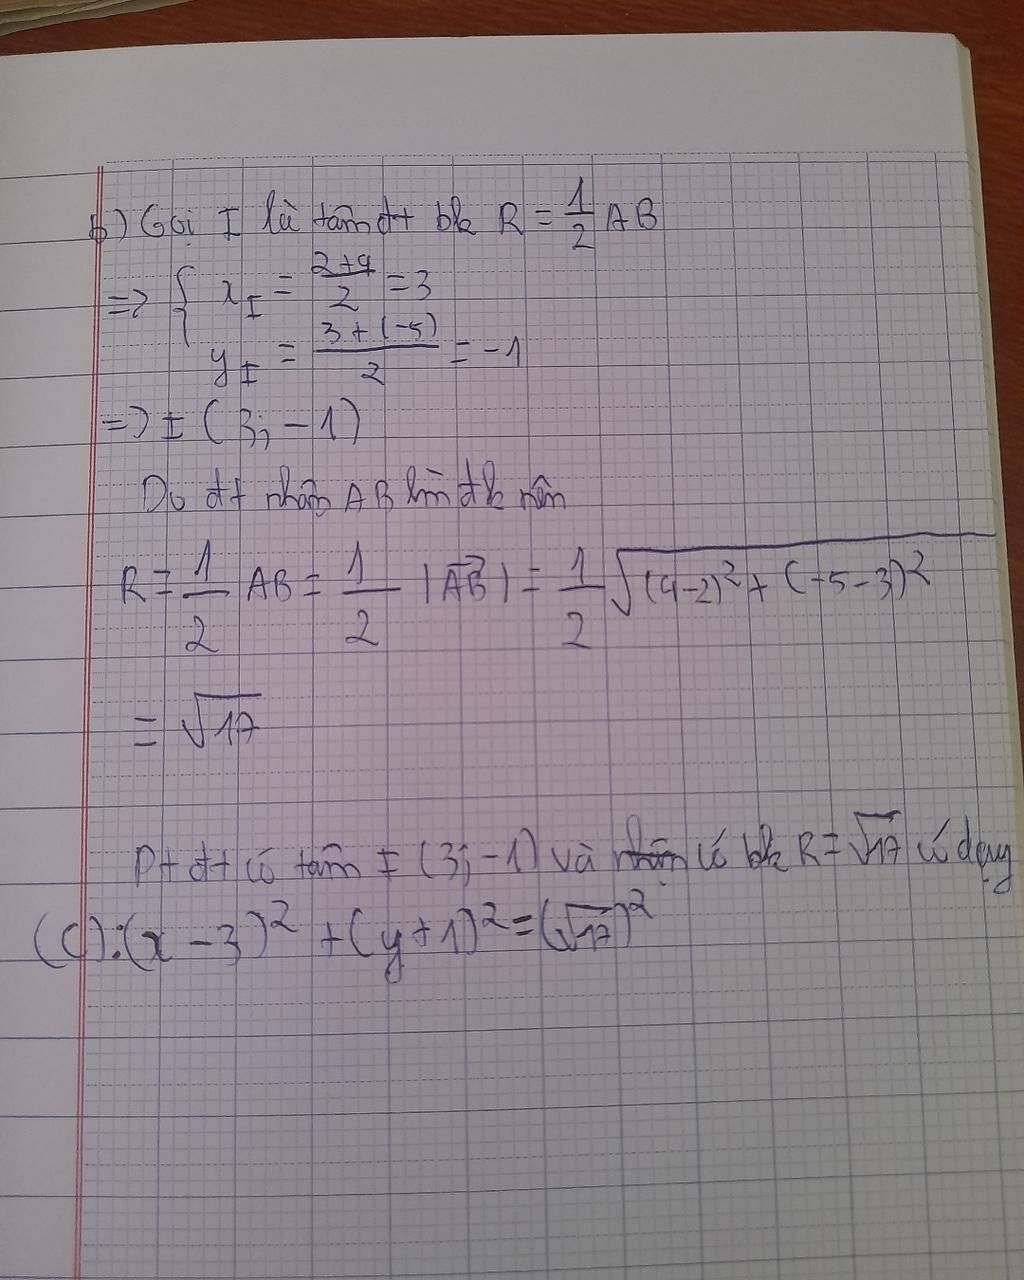 b) Gọi I là tâm đt bk R = 1/2 AB
=> { x_I = (2+4)/2 = 3
y_I = (3+(-5))/2 = -1
=> I (3; -1)
Do đt nhận AB làm đk nên
R = 1/2 AB = 1/2 |AB→| = 1/2 √((4-2)² + (-5-3)²)
= √17
Pt đt có tâm I (3; -1) và có bk R = √17 có dạng
(C): (x - 3)² + (y + 1)² = (√17)²